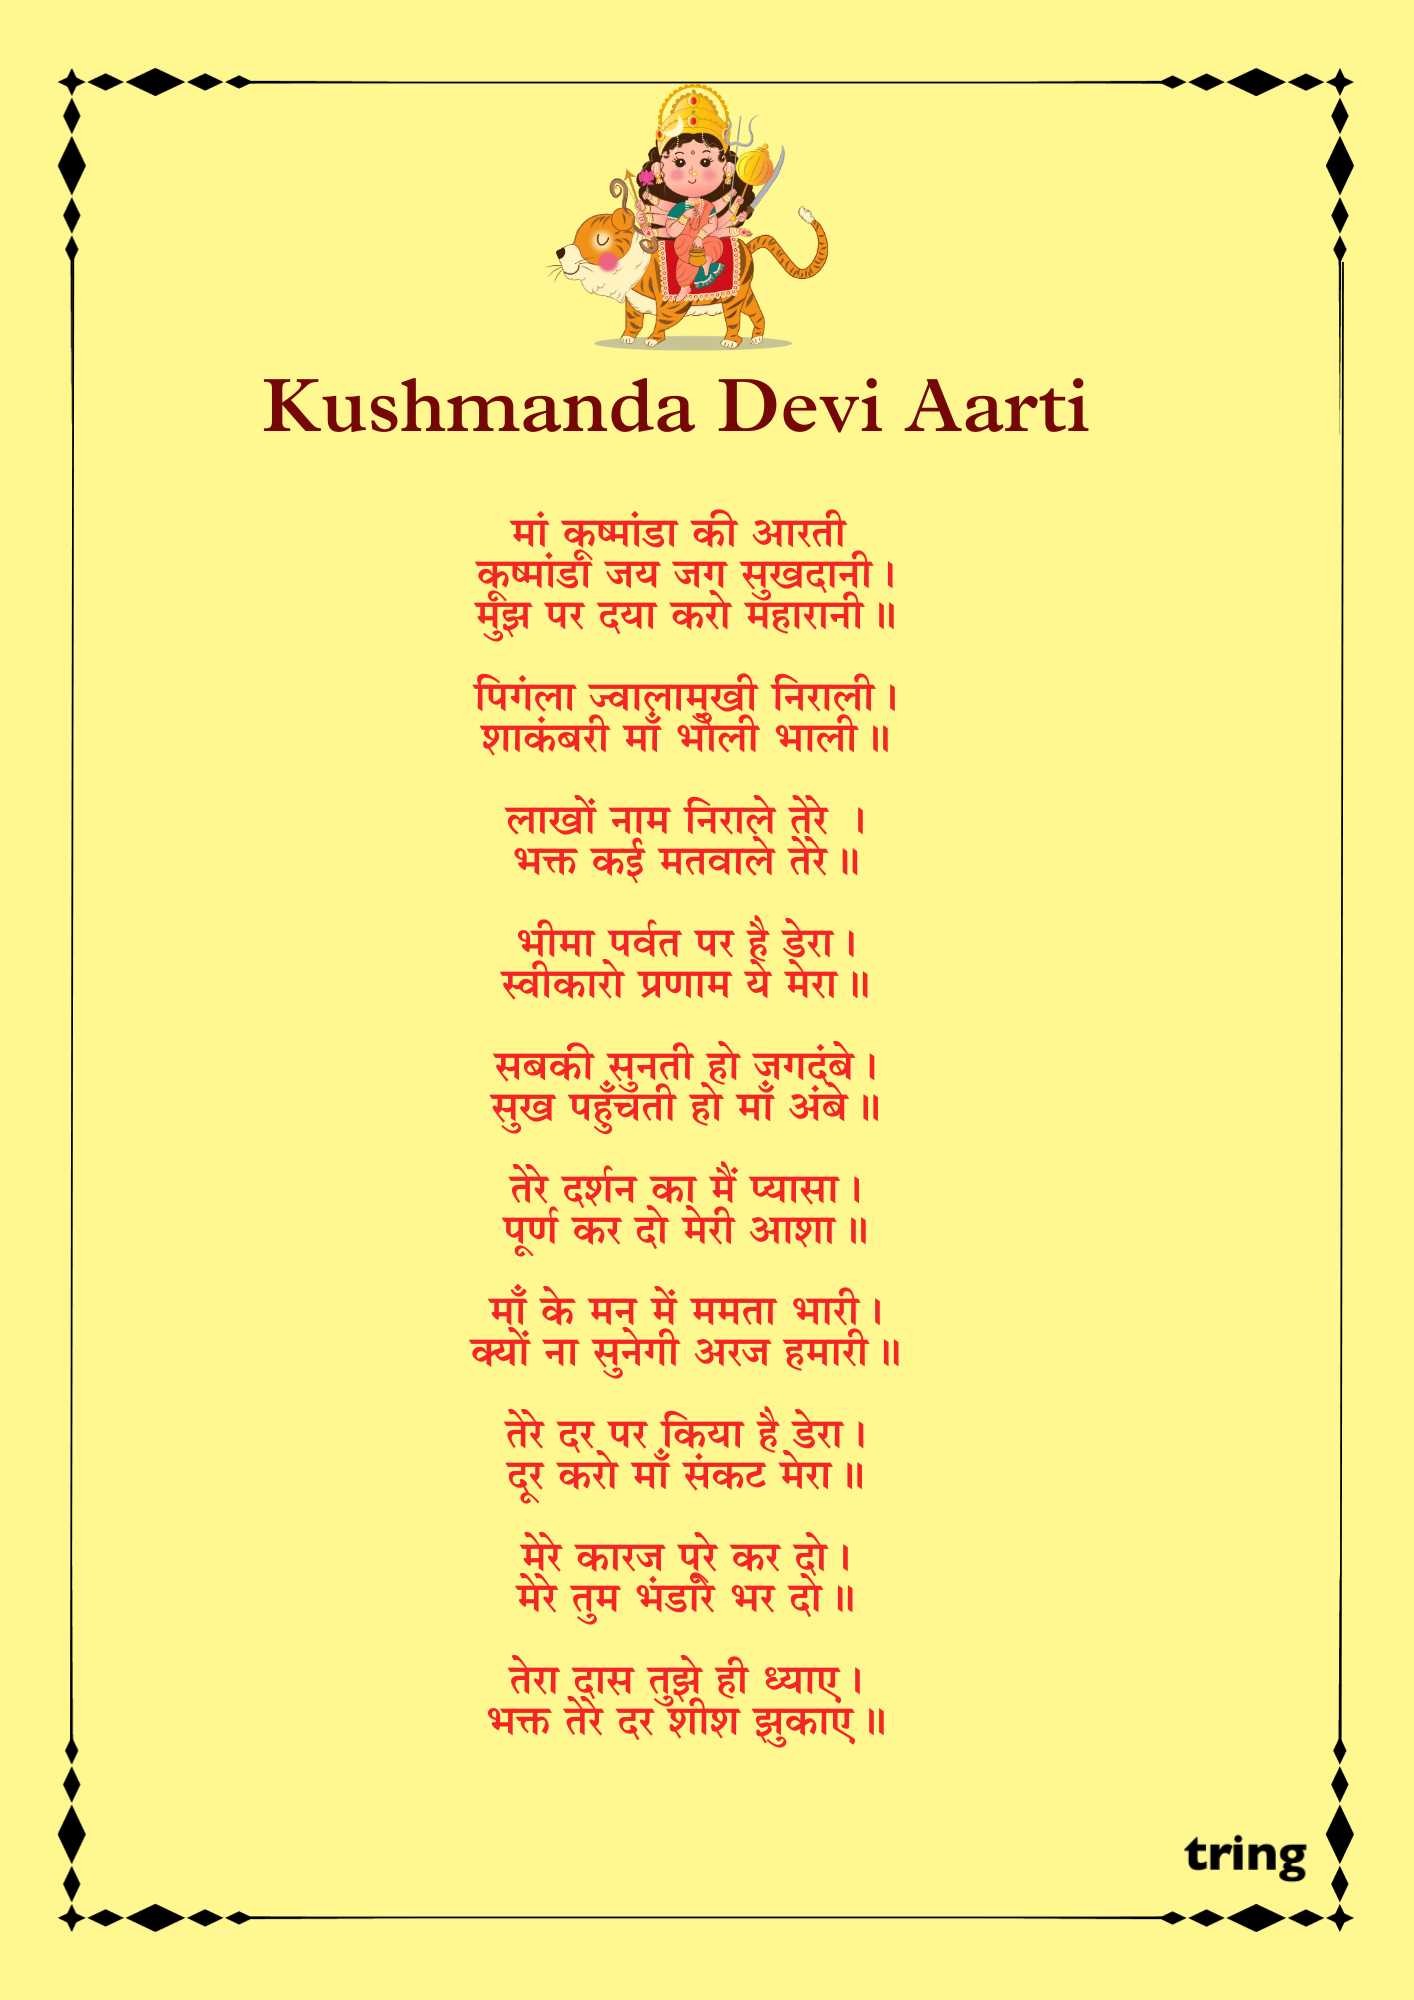 Kushmanda Devi Aarti
मां कूष्मांडा की आरती
कूष्मांडा जय जग सुखदानी।
मुझ पर दया करो महारानी॥
पिगंला ज्वालामुखी निराली।
शाकंबरी माँ भोली भाली॥
लाखों नाम निराले तेरे ।
भक्त कई मतवाले तेरे॥
भीमा पर्वत पर है डेरा।
स्वीकारो प्रणाम ये मेरा॥
सबकी सुनती हो जगदंबे।
सुख पहुँचती हो माँ अंबे॥
तेरे दर्शन का मैं प्यासा।
पूर्ण कर दो मेरी आशा॥
माँ के मन में ममता भारी।
क्यों ना सुनेगी अरज हमारी॥
तेरे दर पर किया है डेरा।
दूर करो माँ संकट मेरा॥
मेरे कारज पूरे कर दो।
मेरे तुम भंडारे भर दो॥
तेरा दास तुझे ही ध्याए।
भक्त तेरे दर शीश झुकाए॥
tring